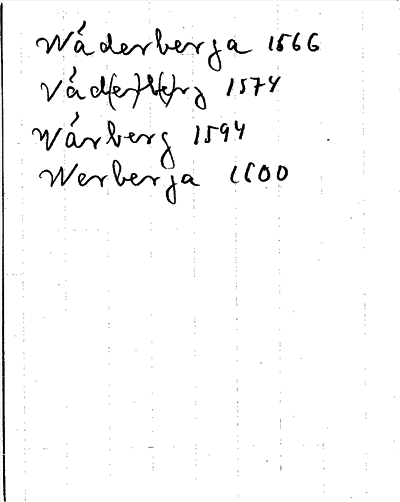 Wåderberga 1566
Våd(er)b(e)rg 1574
Wårberg 1594
Werberga 1600